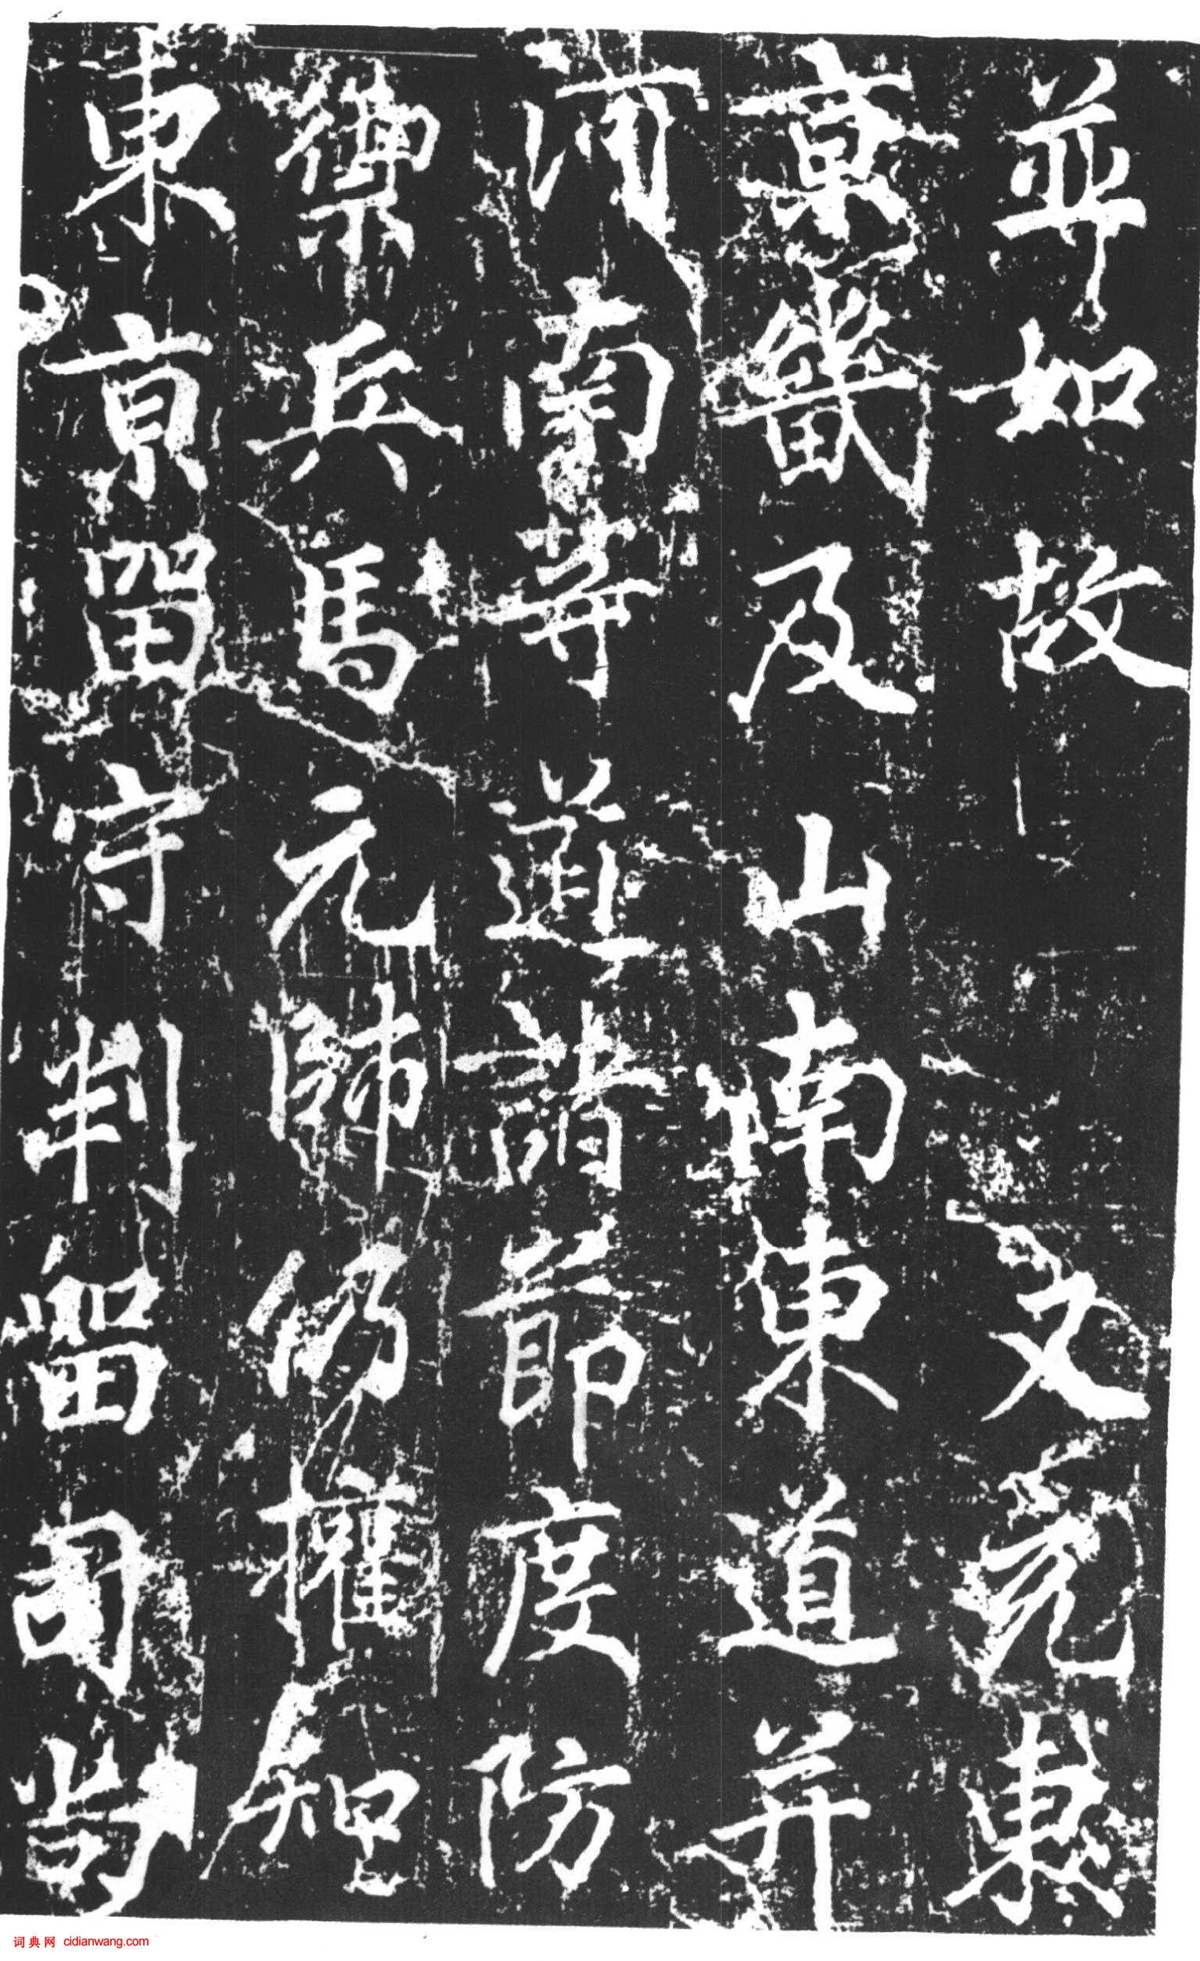 並如故又充東
京畿及山南東道并
河南等道諸節度防
禦兵馬元帥仍權知
東京留守判留司尚
词典网 cidianwang.com